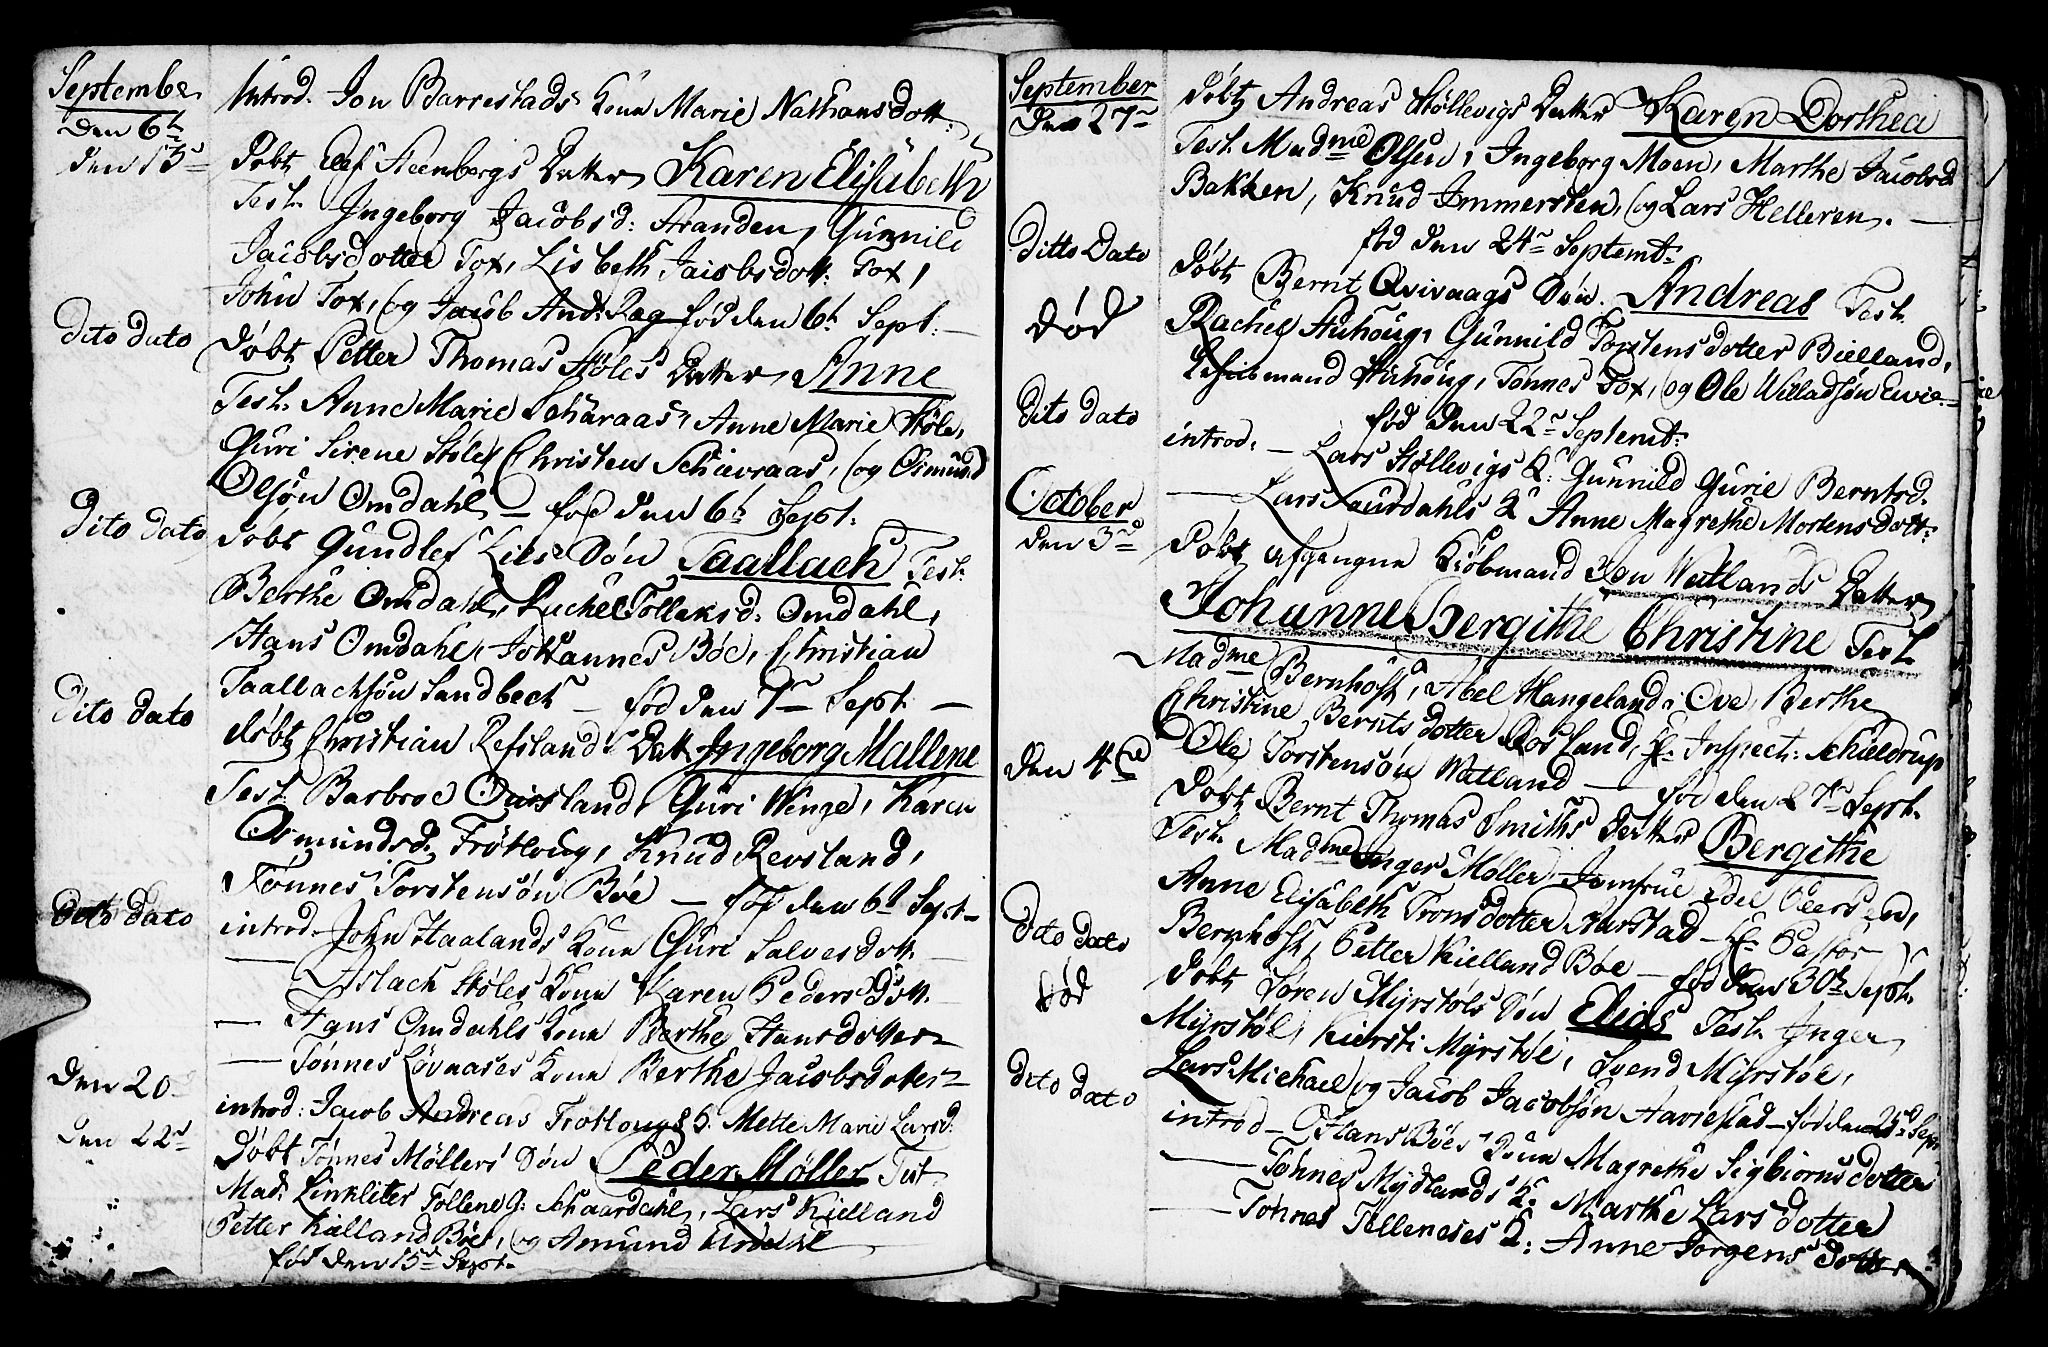 September
Den 6te
Introd. Jon Barrestads Kone Marie Nathansdott.
den 13de
Døbt Elef Steenbergs Datter Karen Elisabeth
Test. Ingeborg Jacobsd: Stranden, Gunnild
Jacobsdotter Tox, Lisbeth Jacobsdott. Tox,
John Tox, og Jacob And: Ræg fød den 6te Sept. —
Dito dato
Døbt Petter Thomas Støles Datter Anne
Test. Anne Marie Scharaas, Anne Marie Støle,
Guri Sirene Støle, Christen Schievraas, og Osmund
Olsøn Omdahl — fød den 6te Sept. —
Dito dato
Døbt Gundlef Lies Søn Taallach Test.
Berthe Omdahl, Rachel Tolleksd. Omdahl,
Hans Omdahl, Johannes Bøe, Christian
Taallachsøn Sandbech — fød den 7de Sept. —
Dito dato
døbt Christian Refslands Datt. Ingeborg Mallene
Test. Barbroe Ouesland, Guri Wenge, Karen
Osmundsd. Frøtloug, Knud Revsland,
Tønnes Torstensøn Bøe — fød den 6te Sept —
Dito dato
introd. John Haalands Kone Guri Salvesdott.
— Aslach Støles Kone Karen Pedersdott.
— Hans Omdahls Kone Berthe Hansdotter
— Tønnes Løvaases Kone Berthe Jacobsdotter
Den 20de
introd: Jacob Andreas Frøtlougs K. Mette Marie Larsd:
Den 22de
Døbt Tønnes Møllers Søn Peder Møller Test.
Mad. Linkliter Tollene G: Schaardahl, Lars Kielland
Petter Kielland Bøe, og Amund Urdahl
fød den 15de Sept.
September
Den 27de
Døbt Andreas Støllevigs Datter Karen Dorthea
Test. Madme Olsen, Ingeborg Moen, Marthe Jacobsd.
Bakken, Knud Immersten, og Lars Helleren. —
fød den 24de Septemt:
Ditto Dato
død
Døbt Bernt Qvivaags Søn. Andreas Test.
Rachel Stuhoug, Gunnild Torstensdotter Bielland,
Stuhoug, Tønnes Tox, og Ole Willadsøn Evie
fød den 22de Septemt:
Dito dato
introd. — Lars Støllevigs K: Gunnild Gurie Berntsd.
— Lars Lourdahls K Anne Magrethe Mortensdott:
October
Den 3de
Døbt afgangne Kiøbmand Jon Watlands Datter
Johanne Bergithe Christine Test.
Madme Bernhoft, Abel Hangeland, Ove, Berthe
Christine Berntsdotter Rosland, Hr. Inspect: Schieldrup
Ole Torstensøn Watland — fød den 27de Sept.
Den 4de
Døbt Bernt Thomas Smiths Datter Bergithe
Test. Madme Inger Møller Jomfrue Edel Olersen,
Anne Elisabeth Tronsdotter Aarstad — Hr. Pastor
Bernhoft, Petter Kielland Bøe — fød den 30te Sept.
Dito dato
død
Døbt Søren Myrstøls Søn Elias Test. Inger
Myrstøl, Kiersti Myrstøl, Svend Myrstøl,
Lars Michael og Jacob Jacobsøn Aarrestad — fød den 25de Sept
Dito dato
introd — Hans Bøes Kone Magrethe Sigbiornsdotter
— Tønnes Mydlands K. Marthe Larsdotter
— Tønnes Telleneses K: Anne Jorgensdotter